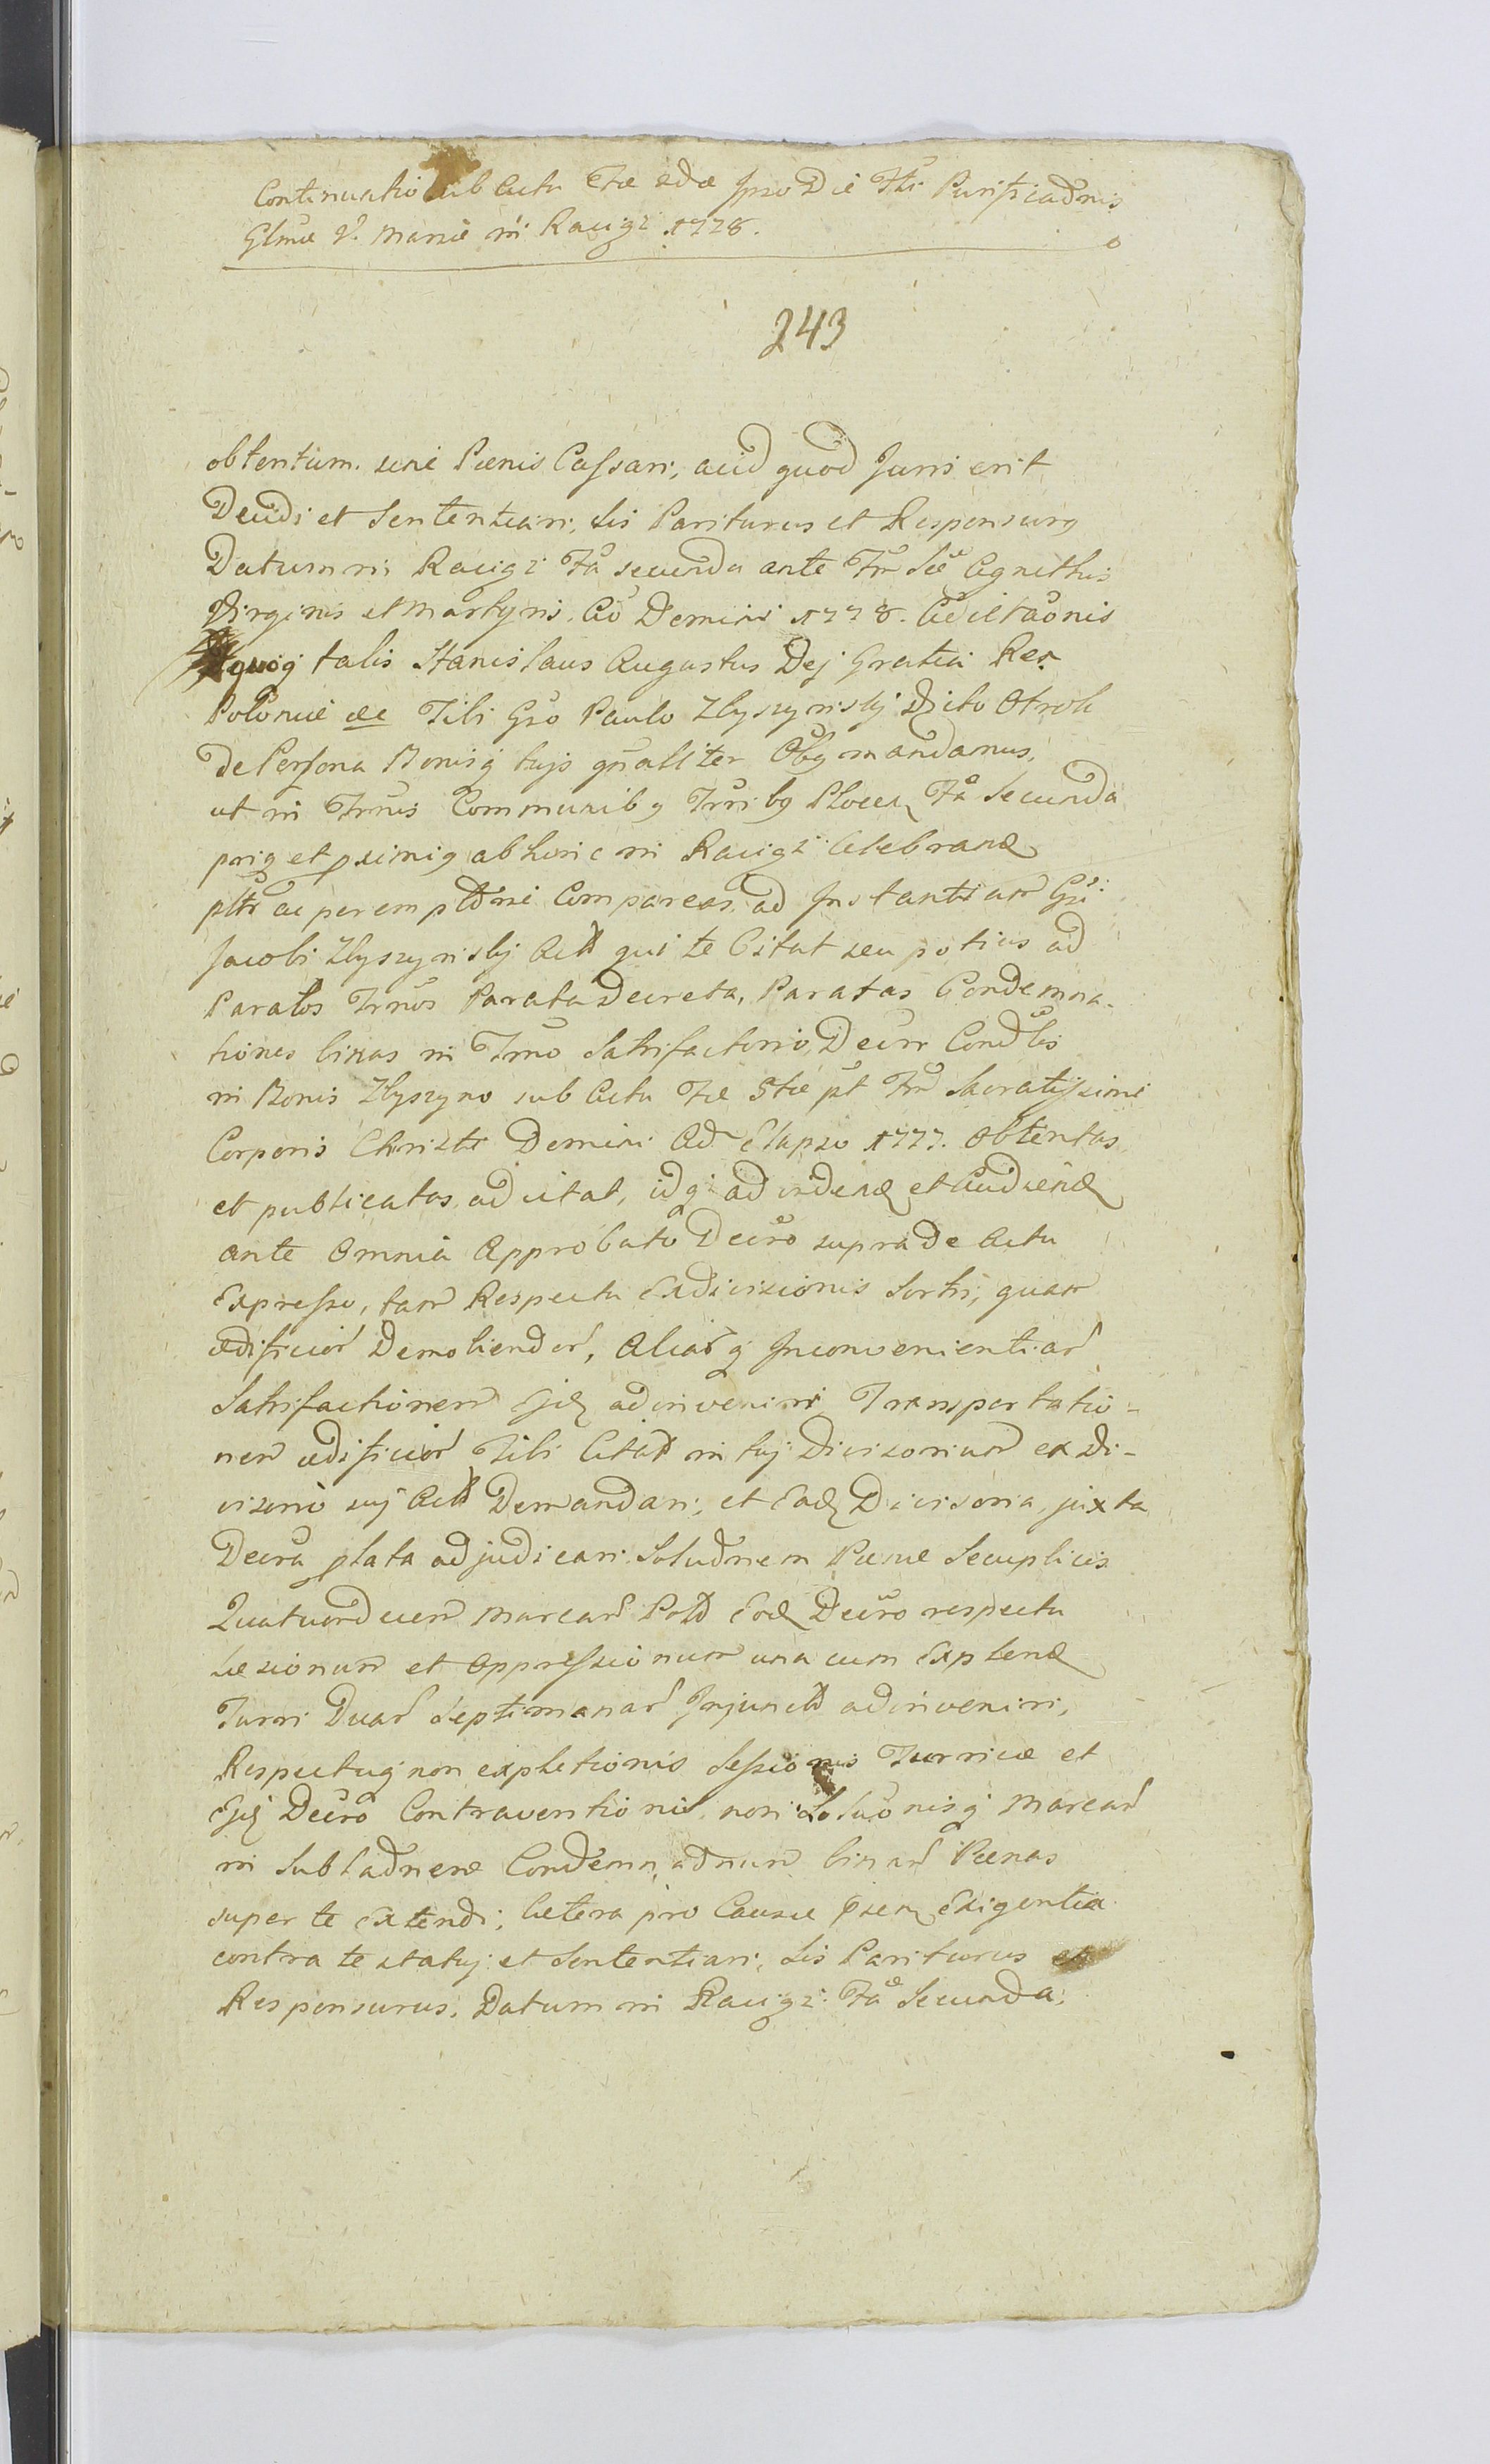 Continuatio sub Actu Fæ 2dæ Ipso Die Fti Purificaõnis
Glmæ V. Mariæ in Raciąż 1778.
243
obtentum. sine Pœnis Cassari, aliud quod Juris erit
Decidi et Sententiari, sis Pariturus et Responsurus
Datum in Raciąż Fa secunda ante Fm Sæ Agnethis
Virginis et Martyris. Aõ Domini 1778. Adcitaõnis
quoq talis Stanislaus Augustus Dej Gratia Rex
Poloniæ &c Tibi Gso Paulo Zbyszyński Dicto Otrok
de Persona Bonisq tujs gñaliter Obg mandamus,
ut in Trnis Communibg Trribg Plocen Fa Secunda
priq et pximiq abhinc in Raciąż Celebrand
pltr ac peremptõrie Compareas, ad Instantiam Gsi
Jacobi Zbyszyński Act qui te Citat seu potius ad
Paratos Trnos Parata Decreta, Paratas Condemna-
tiones binas in Tmo Satisfactorio, Decrr Condlis
in Bonis Zbyszyno sub Actu Fæ 5tæ pt Fm Sacratissimi
Corporis Christi Domini Ad Elapso 1777. Obtentas
et publicatas, adcitat, idq ad vidend et Audiend
ante Omnia Approbato Decro supra de Actu
Expresso, tam Respectu Exdivisionis Sortis, quam
ædificior Demoliendor, Aliarq Inconvenientiar
Satisfactionem Ejd adinveniri Transportatio-
nem ædificior Tibi Citat in tuj Divisorium ex Di-
visorio suj Act Demandari, et Ead Divisoria, juxta
Decra plata adjudicari Soluõnem Pœnæ Secuplicis
Quatuordecem Marcar Pold Eod Decro respectu
Læsionum et Oppressionum una cum Explend
Turri Duar Septimanar Injunct adinveniri,
Respectuq non expletionis Sessionis Turricæ et
Ejd Decro Contraventionis, non Soluõnisq Marcar
in Sublaõnem Condemnaõnum binar Pœnas
super te Extendi; Cætera pro Causæ psen Exigentia
contra te statuj et Sententiari, sis Pariturus et
Responsurus. Datum in Raciąż Fa Secunda